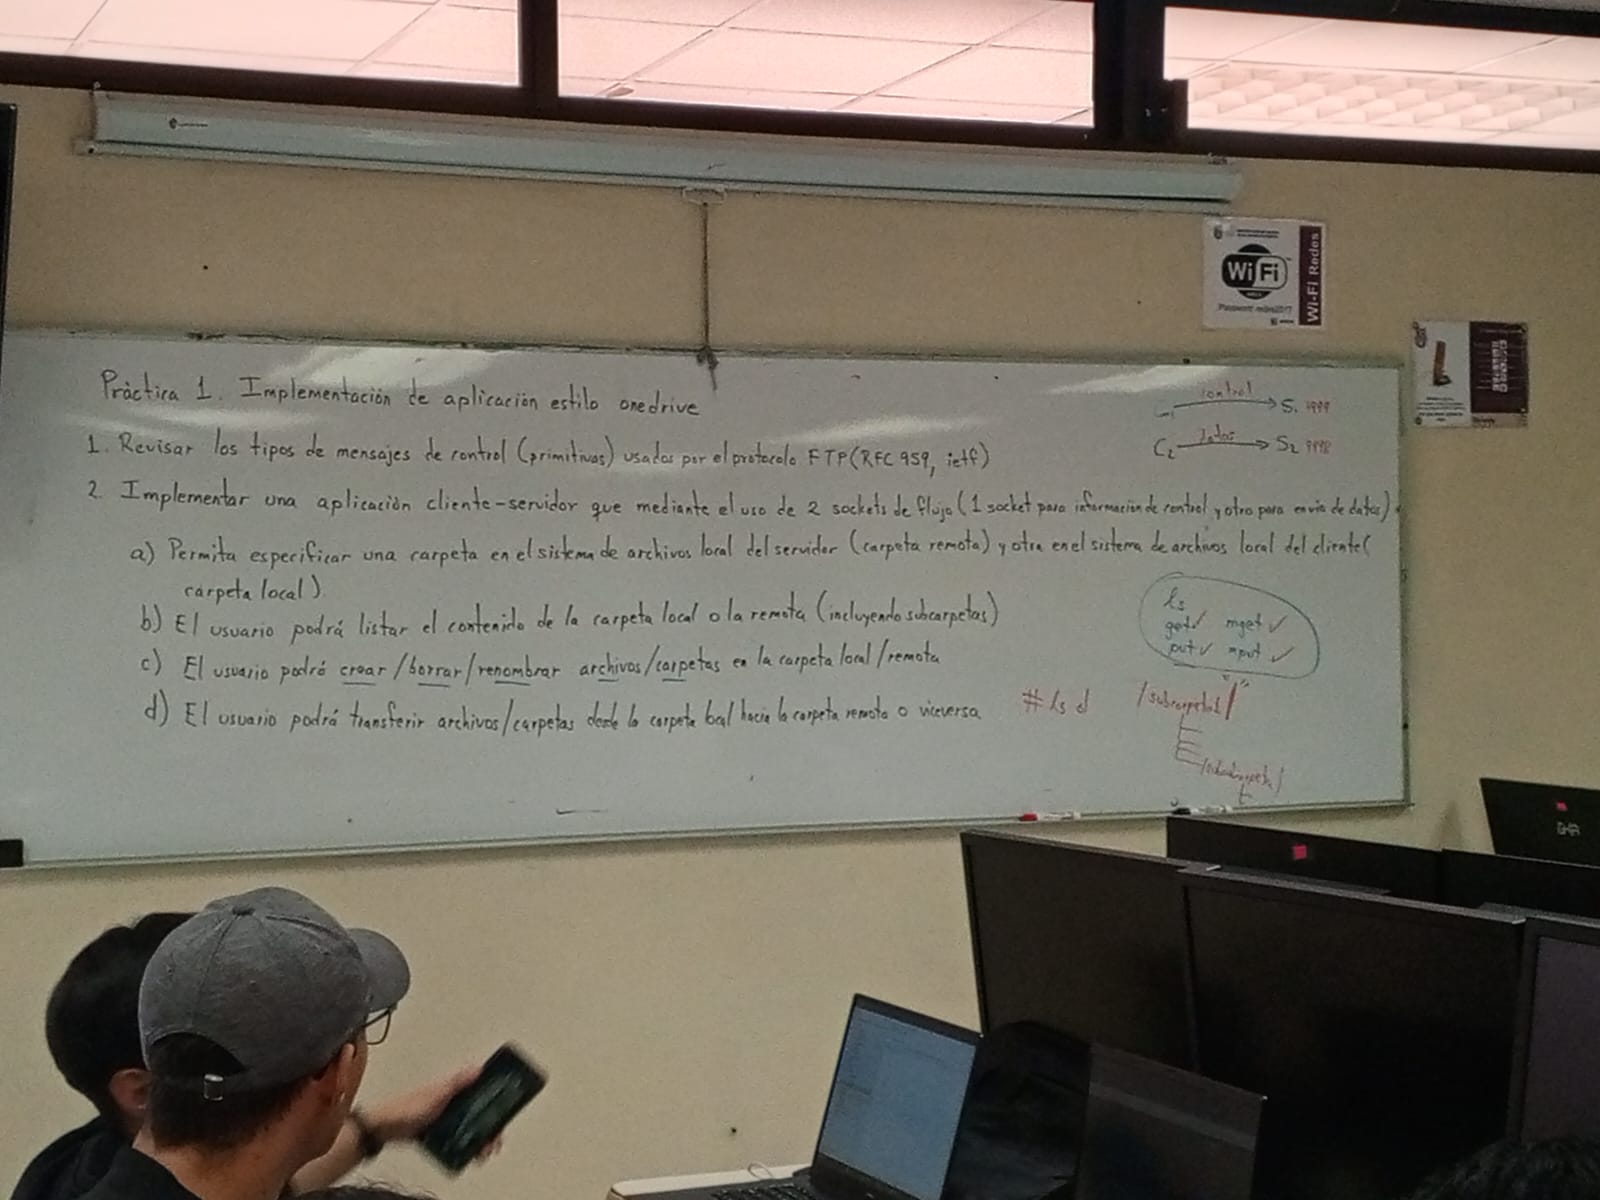 WiFi
Wi-Fi Redes
Práctica 1. Implementación de aplicación estilo onedrive
1. Revisar los tipos de mensajes de control (primitivas) usados por el protocolo FTP (RFC 959, ietf)
2. Implementar una aplicación cliente-servidor que mediante el uso de 2 sockets de flujo (1 socket para información de control y otro para envío de datos)
a) Permita especificar una carpeta en el sistema de archivos local del servidor (carpeta remota) y otra en el sistema de archivos local del cliente (
carpeta local).
b) El usuario podrá listar el contenido de la carpeta local o la remota (incluyendo subcarpetas)
c) El usuario podrá crear/borrar/renombrar archivos/carpetas en la carpeta local/remota
d) El usuario podrá transferir archivos/carpetas desde la carpeta local hacia la carpeta remota o viceversa
control
S1
C2 datos S2
ls
get✓ mget✓
put✓ mput✓
# ls d
"/"
GHIA